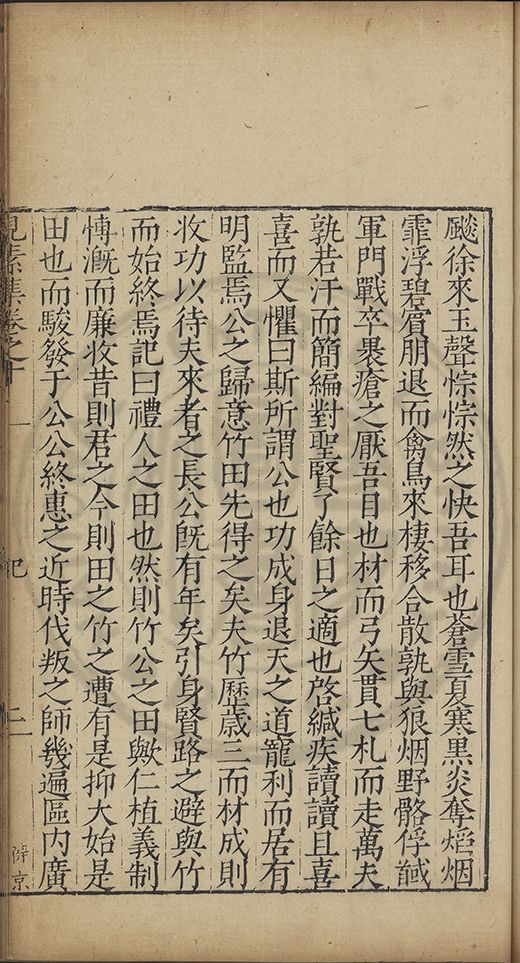 颷徐來玉聲悰悰然之快吾耳也蒼雪夏寒黒炎奪熖烟
霏浮碧賓朋退而禽鳥來棲移合散孰與狼烟野骼俘馘
軍門戰卒褁瘡之厭吾目也材而弓矢貫七札而走萬夫
孰若汗而簡編對聖賢了餘日之適也啓緘疾讀讀且喜
喜而又懼曰斯所謂公也功成身退天之道寵利而居有
明監焉公之歸意竹田先得之矣夫竹歷歳三而材成則
收功以待夫來者之長公旣有年矣引身賢路之避與竹
而始終焉記曰禮人之田也然則竹公之田歟仁植義制
慱漑而廉收昔則君之今則田之竹之遭有是抑大始是
田也而駿發于公公終惠之近時伐叛之師幾遍區内廣
見素集卷之十 記 二